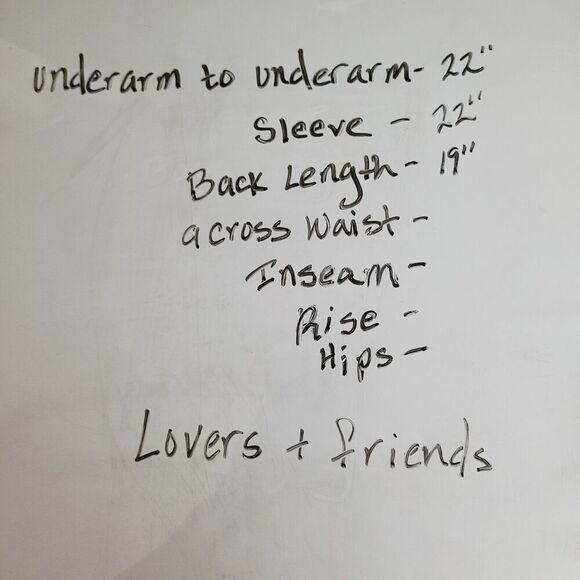 underarm to underarm- 22"
Sleeve - 22"
Back Length - 19"
across Waist -
Inseam -
Rise -
Hips -
Lovers + friends